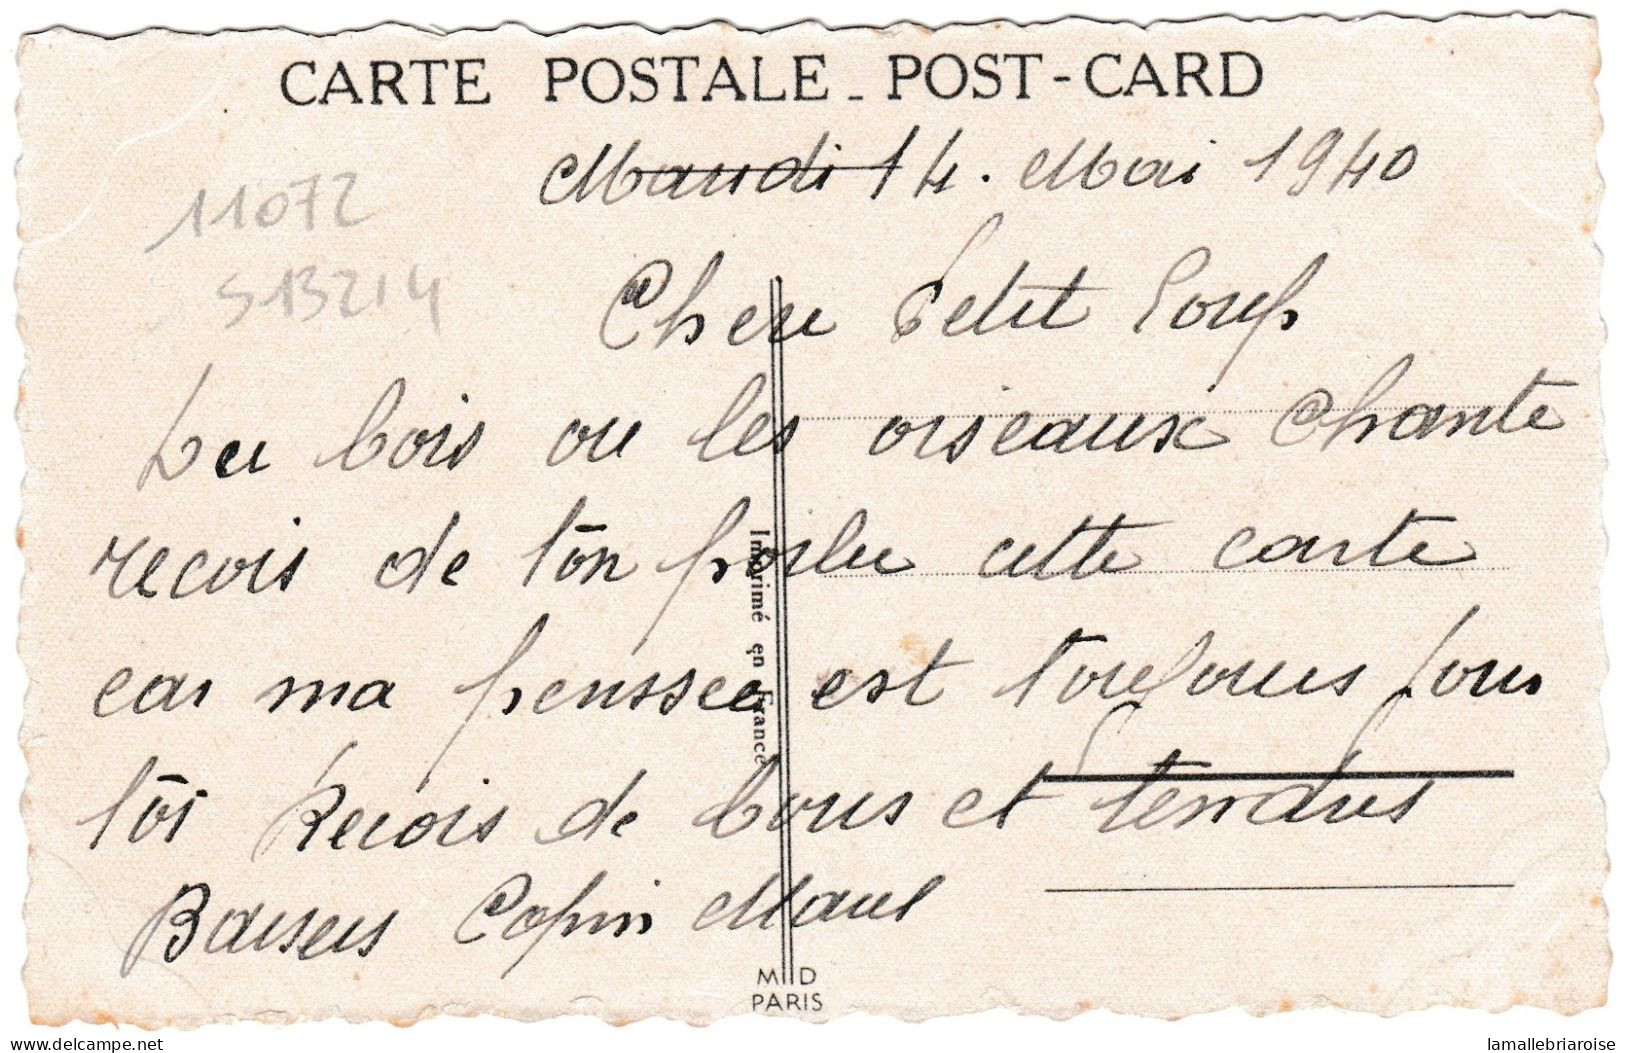 CARTE POSTALE - POST-CARD
Mardi 14. Mai 1940
11072
S13214
Cher Petit Loup
Du bois ou les oiseaux chante
recois de ton poilu cette carte
car ma penssee est toujours pour
toi Recois de bons et tendres
Baisers Copin Marel
Imprimé en France
M D
PARIS
delcampe.net
lamallebriaroise